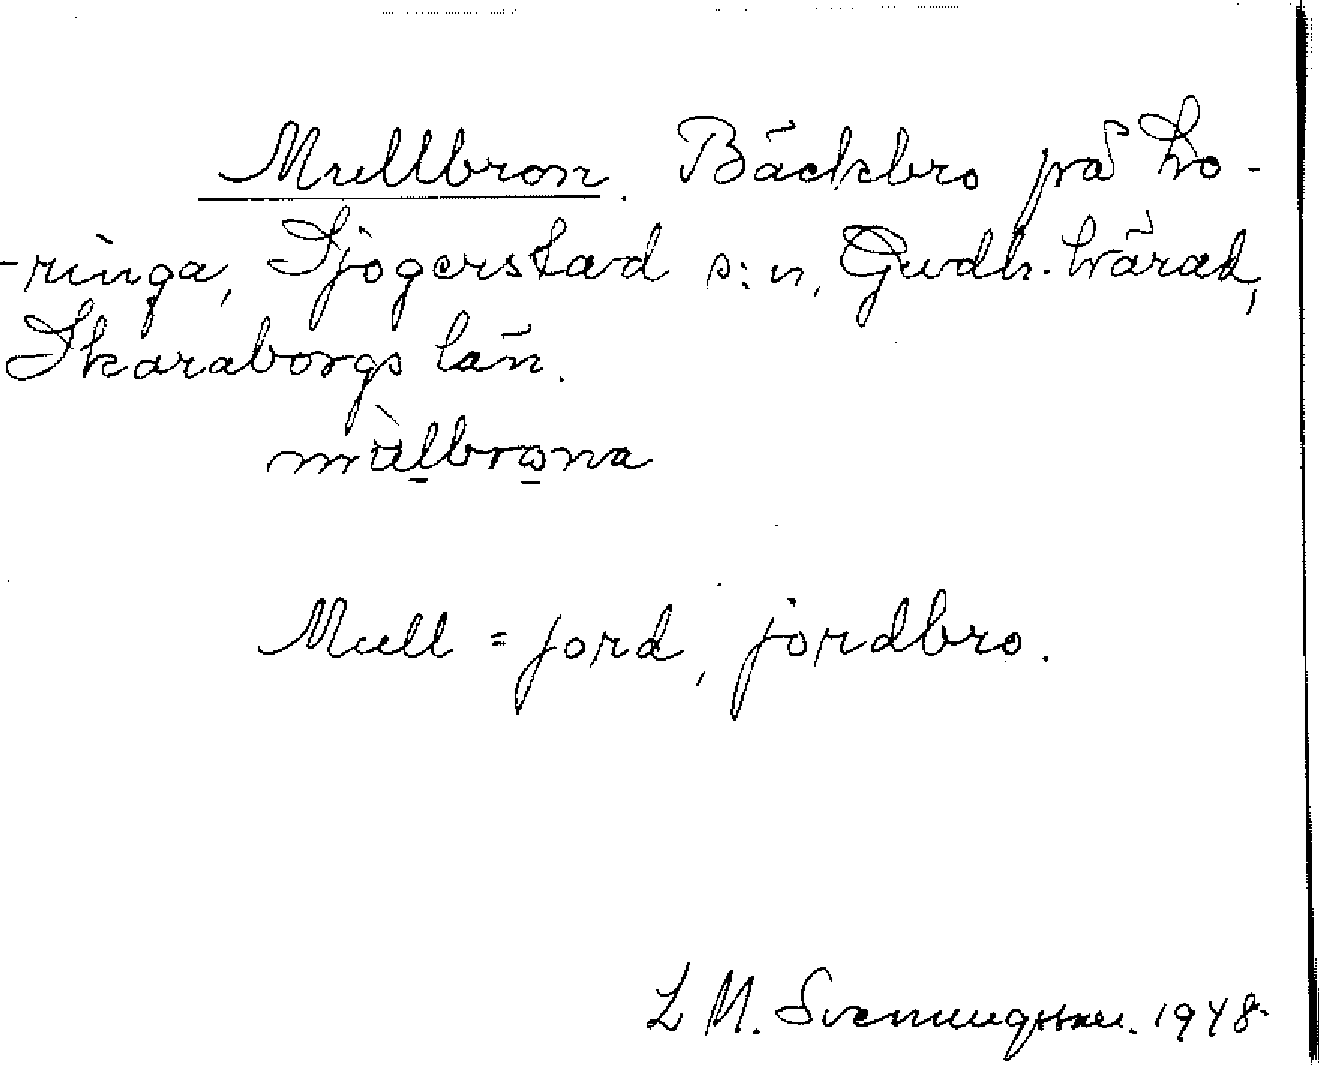 Mullbron. Bäckbro på Lo-
-ringa, Sjogerstad s:n, Gudh. härad,
Skaraborgs län.
mùlbrona
Mull = jord, jordbro.
L M. Svenungsson. 1948.